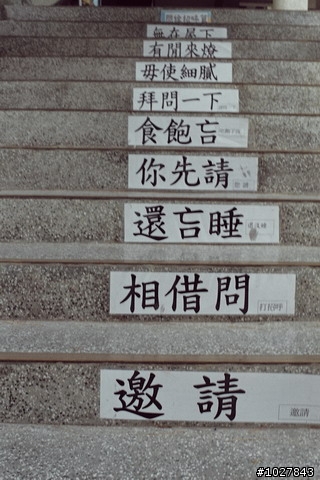 無在厝下
有閒來燎
毋使細膩
拜問一下
食飽吂
你先請
還吂睡 還沒睡
相借問 打招呼
邀請 邀請
#1027843